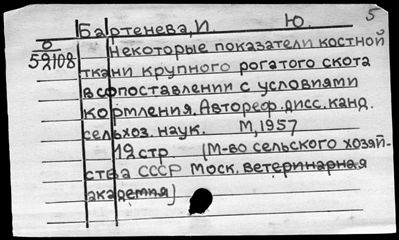 5
Бартенева, И. Ю.
О
52108
Некоторые показатели костной
ткани крупного рогатого скота
в сопоставлении с условиями
кормления. Автореф. дисс. канд.
сельхоз. наук. М, 1957
19 стр. (М-во сельского хозяй-
ства СССР Моск. ветеринарная
академия)